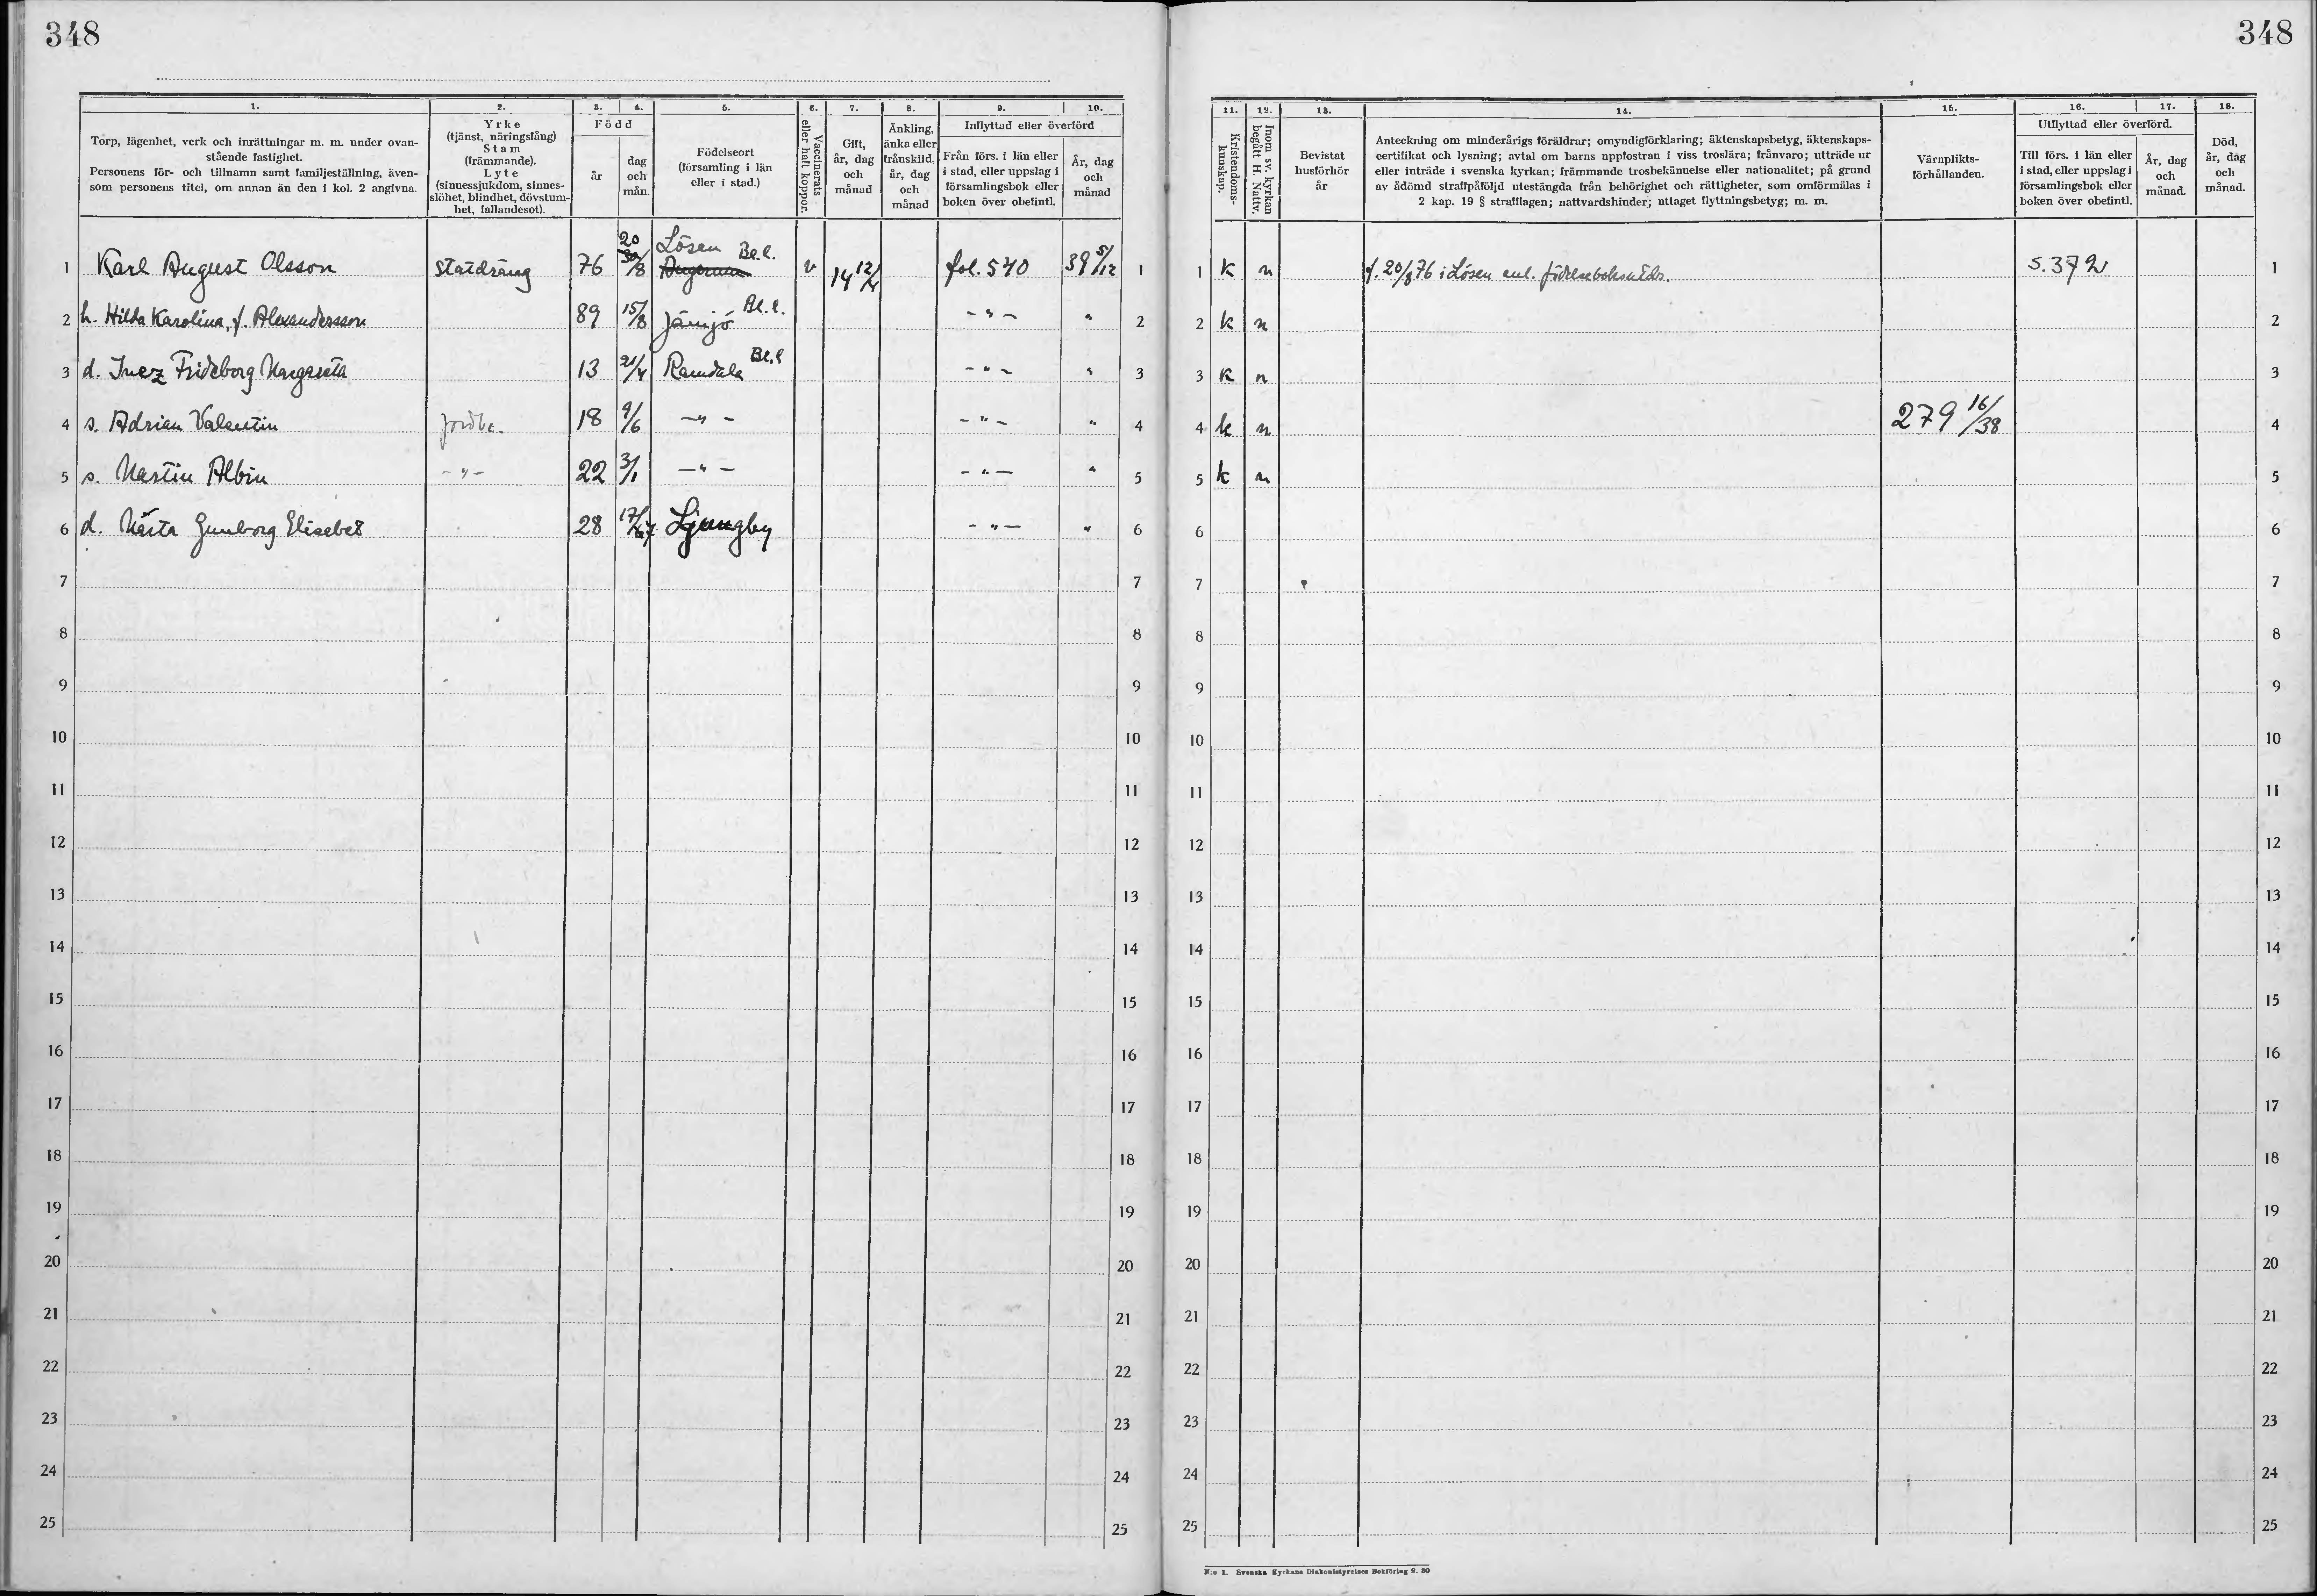 348
348
1. 2. 3. 4. 5. 6. 7. 8. 9. 10.
Torp, lägenhet, verk och inrättningar m. m. under ovan-
stående fastighet.
Personens för- och tillnamn samt familjeställning, även-
som personens titel, om annan än den i kol. 2 angivna.
Yrke
(tjänst, näringsfång)
Stam
(främmande).
Lyte
(sinnessjukdom, sinnes-
slöhet, blindhet, dövstum-
het, fallandesot).
Född
år
dag
och
mån.
Födelseort
(församling i län
eller i stad.)
Vaccinerats
eller haft koppor.
Gift,
år, dag
och
månad
Änkling,
änka eller
frånskild,
år, dag
och
månad
Inflyttad eller överförd
Från förs. i län eller
i stad, eller uppslag i
församlingsbok eller
boken över obefintl.
År, dag
och
månad
1 Karl August Olsson statdräng 76 20/8 Lösen Bl.l. v 14 12/4 fol. 540 39 5/12 1
2 h. Hilda Karolina, f. Alexandersson 89 15/8 Jämjö Bl.l. -"- " 2
3 d. Inez Frideborg Margareta 13 21/4 Ramdala Bl.l -"- " 3
4 s. Adrian Valentin jordbr. 18 9/6 -"- -"- " 4
5 s. Martin Albin -"- 22 3/1 -"- -"- " 5
6 d. Märta Gunborg Elisabet 28 17/ Ljungby -"- " 6
7 7
8 8
9 9
10 10
11 11
12 12
13 13
14 14
15 15
16 16
17 17
18 18
19 19
20 20
21 21
22 22
23 23
24 24
25 25
11. 12. 13. 14. 15. 16. 17. 18.
Kristendoms-
kunskap.
Inom sv. kyrkan
begått H. Nattv.
Bevistat
husförhör
år
Anteckning om minderårigs föräldrar; omyndigförklaring; äktenskapsbetyg, äktenskaps-
certifikat och lysning; avtal om barns uppfostran i viss troslära; frånvaro; utträde ur
eller inträde i svenska kyrkan; främmande trosbekännelse eller nationalitet; på grund
av ådömd straffpåföljd utestängda från behörighet och rättigheter, som omförmälas i
2 kap. 19 § strafflagen; nattvardshinder; uttaget flyttningsbetyg; m. m.
Värnplikts-
förhållanden.
Utflyttad eller överförd.
Till förs. i län eller
i stad, eller uppslag i
församlingsbok eller
boken över obefintl.
År, dag
och
månad.
Död,
år, dag
och
månad.
1 k n f. 20/8 76 i Lösen enl. födelseboksutdr. s. 372 1
2 k n 2
3 k n 3
4 k n 279 16/38 4
5 k n 5
6 6
7 7
8 8
9 9
10 10
11 11
12 12
13 13
14 14
15 15
16 16
17 17
18 18
19 19
20 20
21 21
22 22
23 23
24 24
25 25
N:o 1. Svenska Kyrkans Diakonistyrelses Bokförlag 9. 30